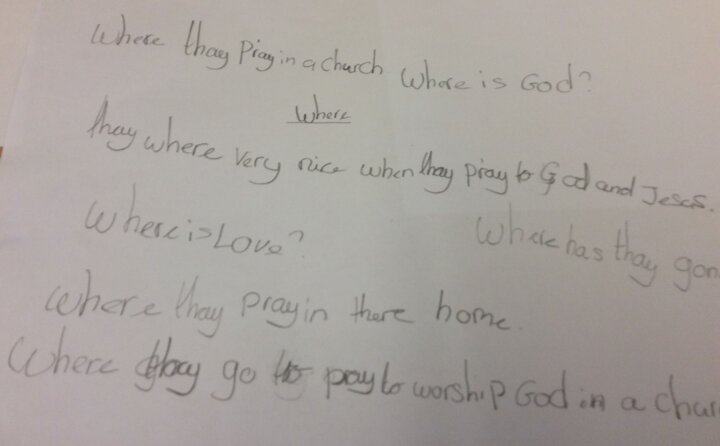 Where thay Pray in a church Where is God?
Where
thay where very nice when thay pray to God and Jeses.
Where is Love?
Where has thay gon
Where thay Pray in there home.
Where thay go to pray to worship God in a chur